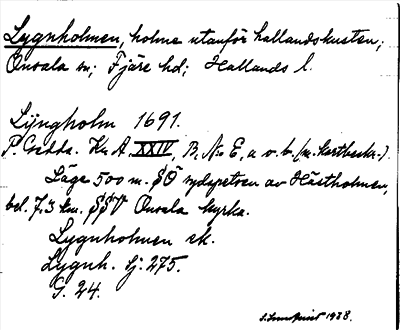 Lygnholmen, holme utanför hallandskusten;
Onsala sn; Fjäre hd; Hallands l.
Lijngholm 1691.
P. Gedda. Kr. A. XXIV, B. No E, a v. b. (m. kartbeskr.).
Läge 500 m. SÖ sydspetsen av Hästholmen,
bel. 7,3 km. SSV Onsala kyrka.
Lygnholmen ek.
Lygnh. Sj. 275.
G. 24.
1938.